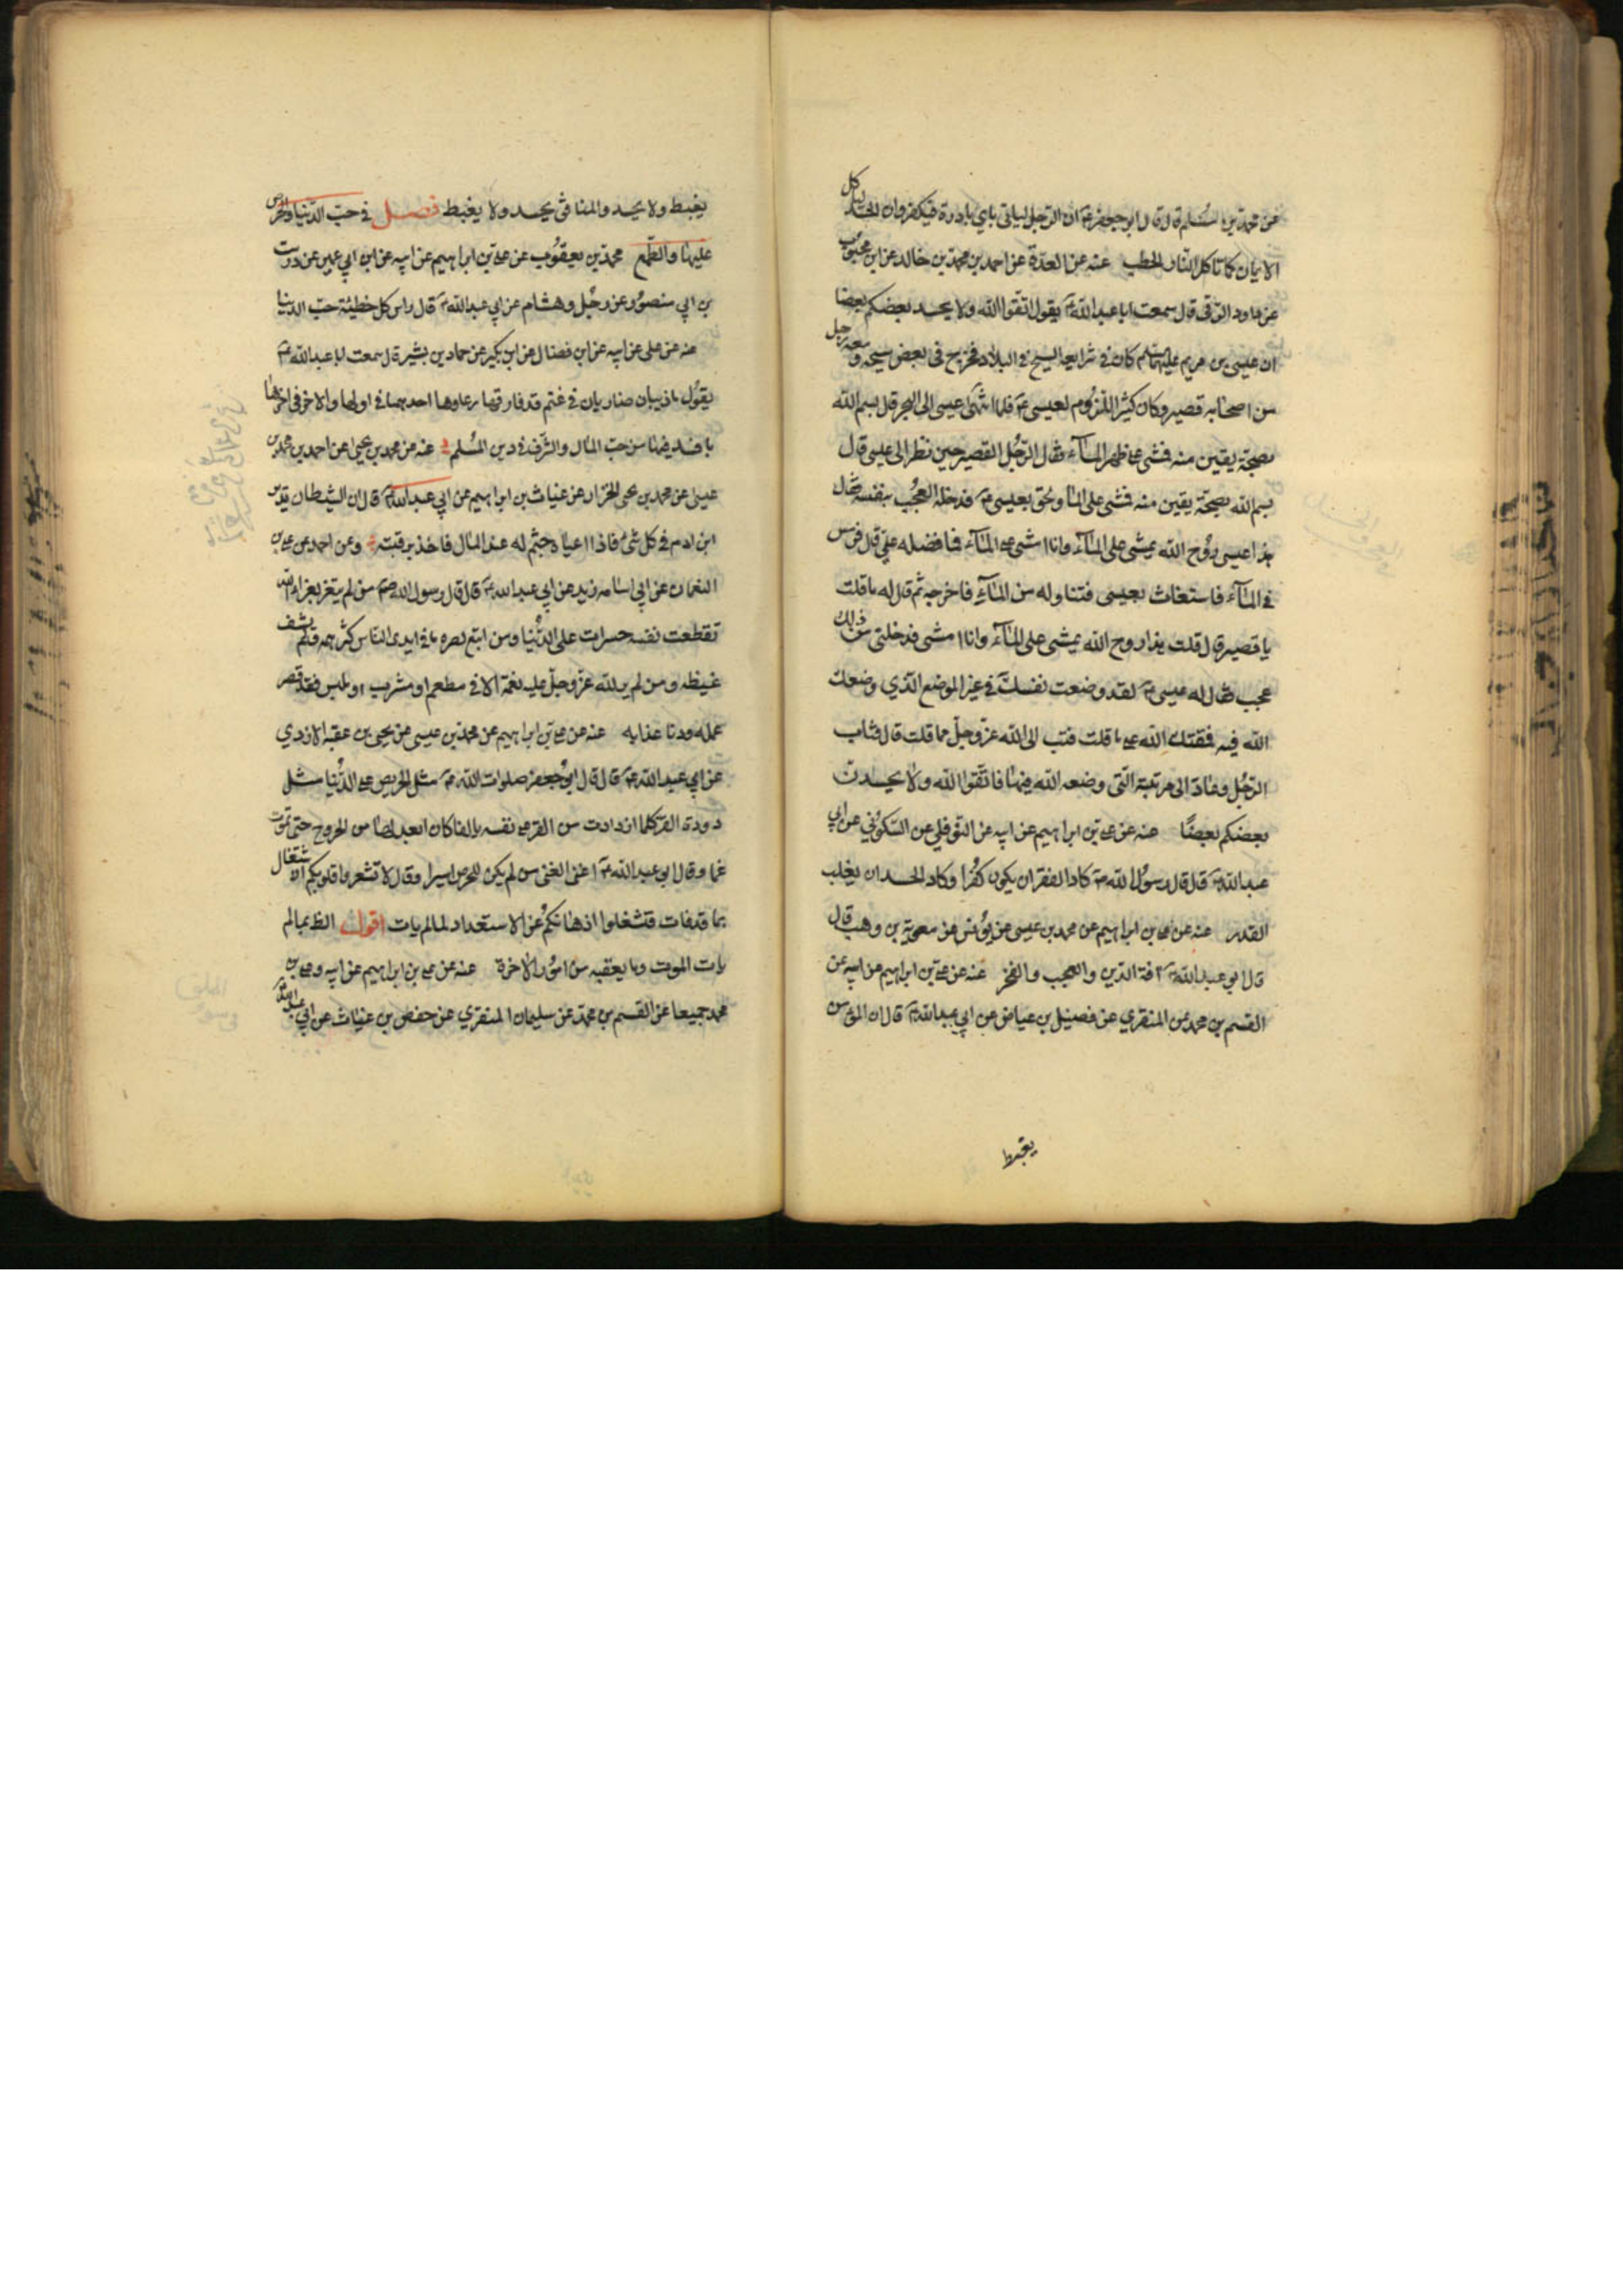 عن محمد بن مسلم قال قال ابو جعفر ع ان الرجل لياتي باي بادرة فيكفر وان الحسد لياكل
الايمان كما تاكل النار الحطب عنه عن العدة عن احمد بن محمد بن خالد عن ابن محبوب
عن داود الرقي قال سمعت ابا عبد الله ع يقول اتقوا الله ولا يحسد بعضكم بعضا
ان عيسى بن مريم عليهما السلم كان في شرايعه السيح في البلاد فخرج في بعض سيحه ومعه رجل
من اصحابه قصير وكان كثير اللزوم لعيسى ع فلما انتهى عيسى الى البحر قال بسم الله
بصحة يقين منه فمشى على ظهر الماء فقال الرجل القصير حين نظر الى عيسى قال
بسم الله بصحة يقين منه فمشى على الما ولحق بعيسى ع فدخله العجب بنفسه فقال
هذا عيسى روح الله يمشي على الماء وانا امشي على الماء فما فضله علي قال فرمس
في الماء فاستغاث بعيسى فتناوله من الماء فاخرجه ثم قال له ما قلت
يا قصير قال قلت هذا روح الله يمشي على الماء وانا امشي فدخلني من ذلك
عجب فقال له عيسى ع لقد وضعت نفسك في غير الموضع الذي وضعك
الله فيه فمقتك الله على ما قلت فتب الى الله عز وجل مما قلت قال فتاب
الرجل وعاد الى مرتبته التي وضعه الله فيها فاتقوا الله ولا يحسدن
بعضكم بعضا عنه عن علي بن ابراهيم عن ابيه عن النوفلي عن السكوني عن ابي
عبد الله ع قال قال رسول الله ص كاد الفقر ان يكون كفرا وكاد الحسد ان يغلب
القدر عنه عن علي بن ابراهيم عن محمد بن عيسى عن يونس عن معوية بن وهب قال
قال ابو عبد الله ع آفة الدين والعجب والفخر عنه عن علي بن ابراهيم عن ابيه عن
القسم بن محمد عن المنقري عن فضيل بن عياض عن ابي عبد الله ع قال ان المؤمن
يغبط
يغبط ولا يحسد والمنافق يحسد ولا يغبط فصل في حب الدنيا والحرص
عليها والطمع محمد بن يعقوب عن علي بن ابراهيم عن ابيه عن ابن ابي عمير عن درست
بن ابي منصور عن رجل وهشام عن ابي عبد الله ع قال راس كل خطيئة حب الدنيا
عنه عن علي عن ابيه عن ابن فضال عن ابن بكير عن حماد بن بشير قال سمعت ابا عبد الله ع
يقول ما ذيبان ضاريان في غنم قد فارقها رعاوها احدهما في اولها والاخر في اخرها
بافسد فيها من حب المال والشرف في دين المسلم عنه عن محمد بن يحيى عن احمد بن محمد بن
عيسى عن محمد بن يحيى الخزاز عن غياث بن ابراهيم عن ابي عبد الله ع قال ان الشيطان يدير
ابن ادم في كل شيء فاذا اعياه جثم له عند المال فاخذ برقبته وعن احمد عن علي بن
النعمان عن ابي اسامه زيد عن ابي عبد الله ع قال قال رسول الله ص من لم يتعز بعزاء الله
تقطعت نفسه حسرات على الدنيا ومن اتبع بصره ما في ايدي الناس كثر همه ولم يشف
غيظه ومن لم ير لله عز وجل عليه نعمة الا في مطعم او مشرب او ملبس فقد قصر
عمله ودنا عذابه عنه عن علي بن ابراهيم عن محمد بن عيسى عن يحيى بن عقبه الازدي
عن ابي عبد الله ع قال قال ابو جعفر صلوات الله ع مثل الحريص على الدنيا مثل
دودة القز كلما ازدادت من القز على نفسه بالفا كان ابعد لها من الخروج حتى تموت
غما وقال ابو عبد الله ع اغنى الغنى من لم يكن للحرص اسيرا وقال لا تشعروا قلوبكم الاشتغال
بما قد فات فتشغلوا اذهانكم عن الاستعداد لما لم يات اقول الظ بما لم
يات الموت وما يعقبه من امور الاخرة عنه عن علي بن ابراهيم عن ابيه وعلي بن
محمد جميعا عن القسم بن محمد عن سليمان المنقري عن حفص بن غياث عن ابي عبد الله